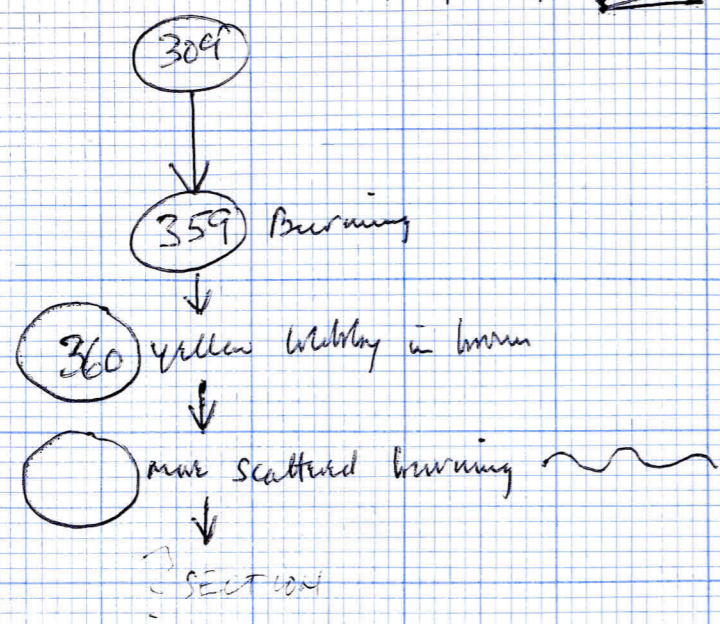 309
359 Burning
360 yellow blobby in brown
more scattered burning
SECTION